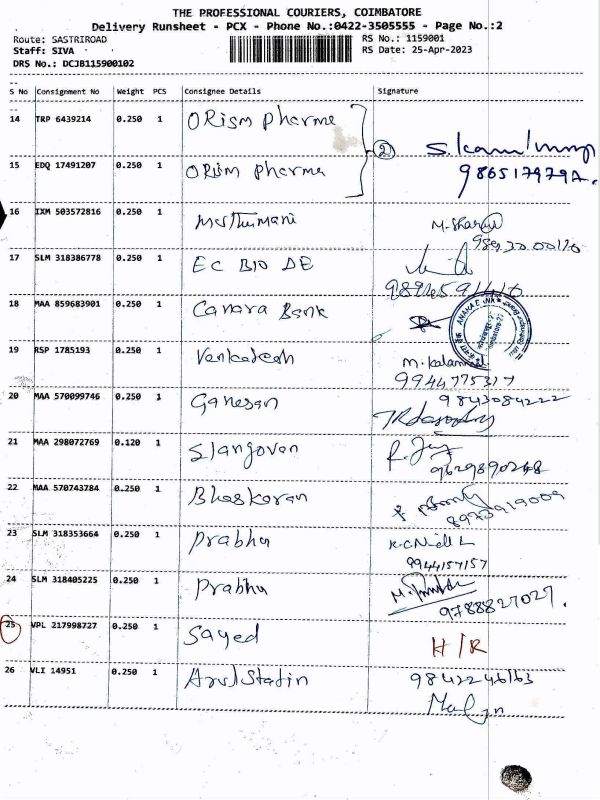 THE PROFESSIONAL COURIERS, COIMBATORE
Delivery Runsheet - PCX - Phone No.:0422-3505555 - Page No.:2
Route: SASTRIROAD
RS No.: 1159001
Staff: SIVA
RS Date: 25-Apr-2023
DRS No.: DCJB115900102
S No Consignment No Weight PCS Consignee Details Signature
14 TRP 6439214 0.250 1 ORism pharma
2
15 EDQ 17491207 0.250 1 ORism pharma
16 IXM 503572816 0.250 1
17 SLM 318386778 0.250 1 EC BIO DE
18 MAA 859683901 0.250 1 Canara Bank
19 RSP 1785193 0.250 1 Venkatesh
9944775317
20 MAA 570099746 0.250 1 Ganesan 9843084222
21 MAA 298072769 0.120 1 Slangovan
9629890248
22 MAA 570743784 0.250 1 Bhaskaran
8973919009
23 SLM 318353664 0.250 1 Prabhu
9944157157
24 SLM 318405225 0.250 1 Prabhu
9788827027.
25 VPL 217998727 0.250 1 Sayed H/R
26 VLI 14951 0.250 1 9842246163